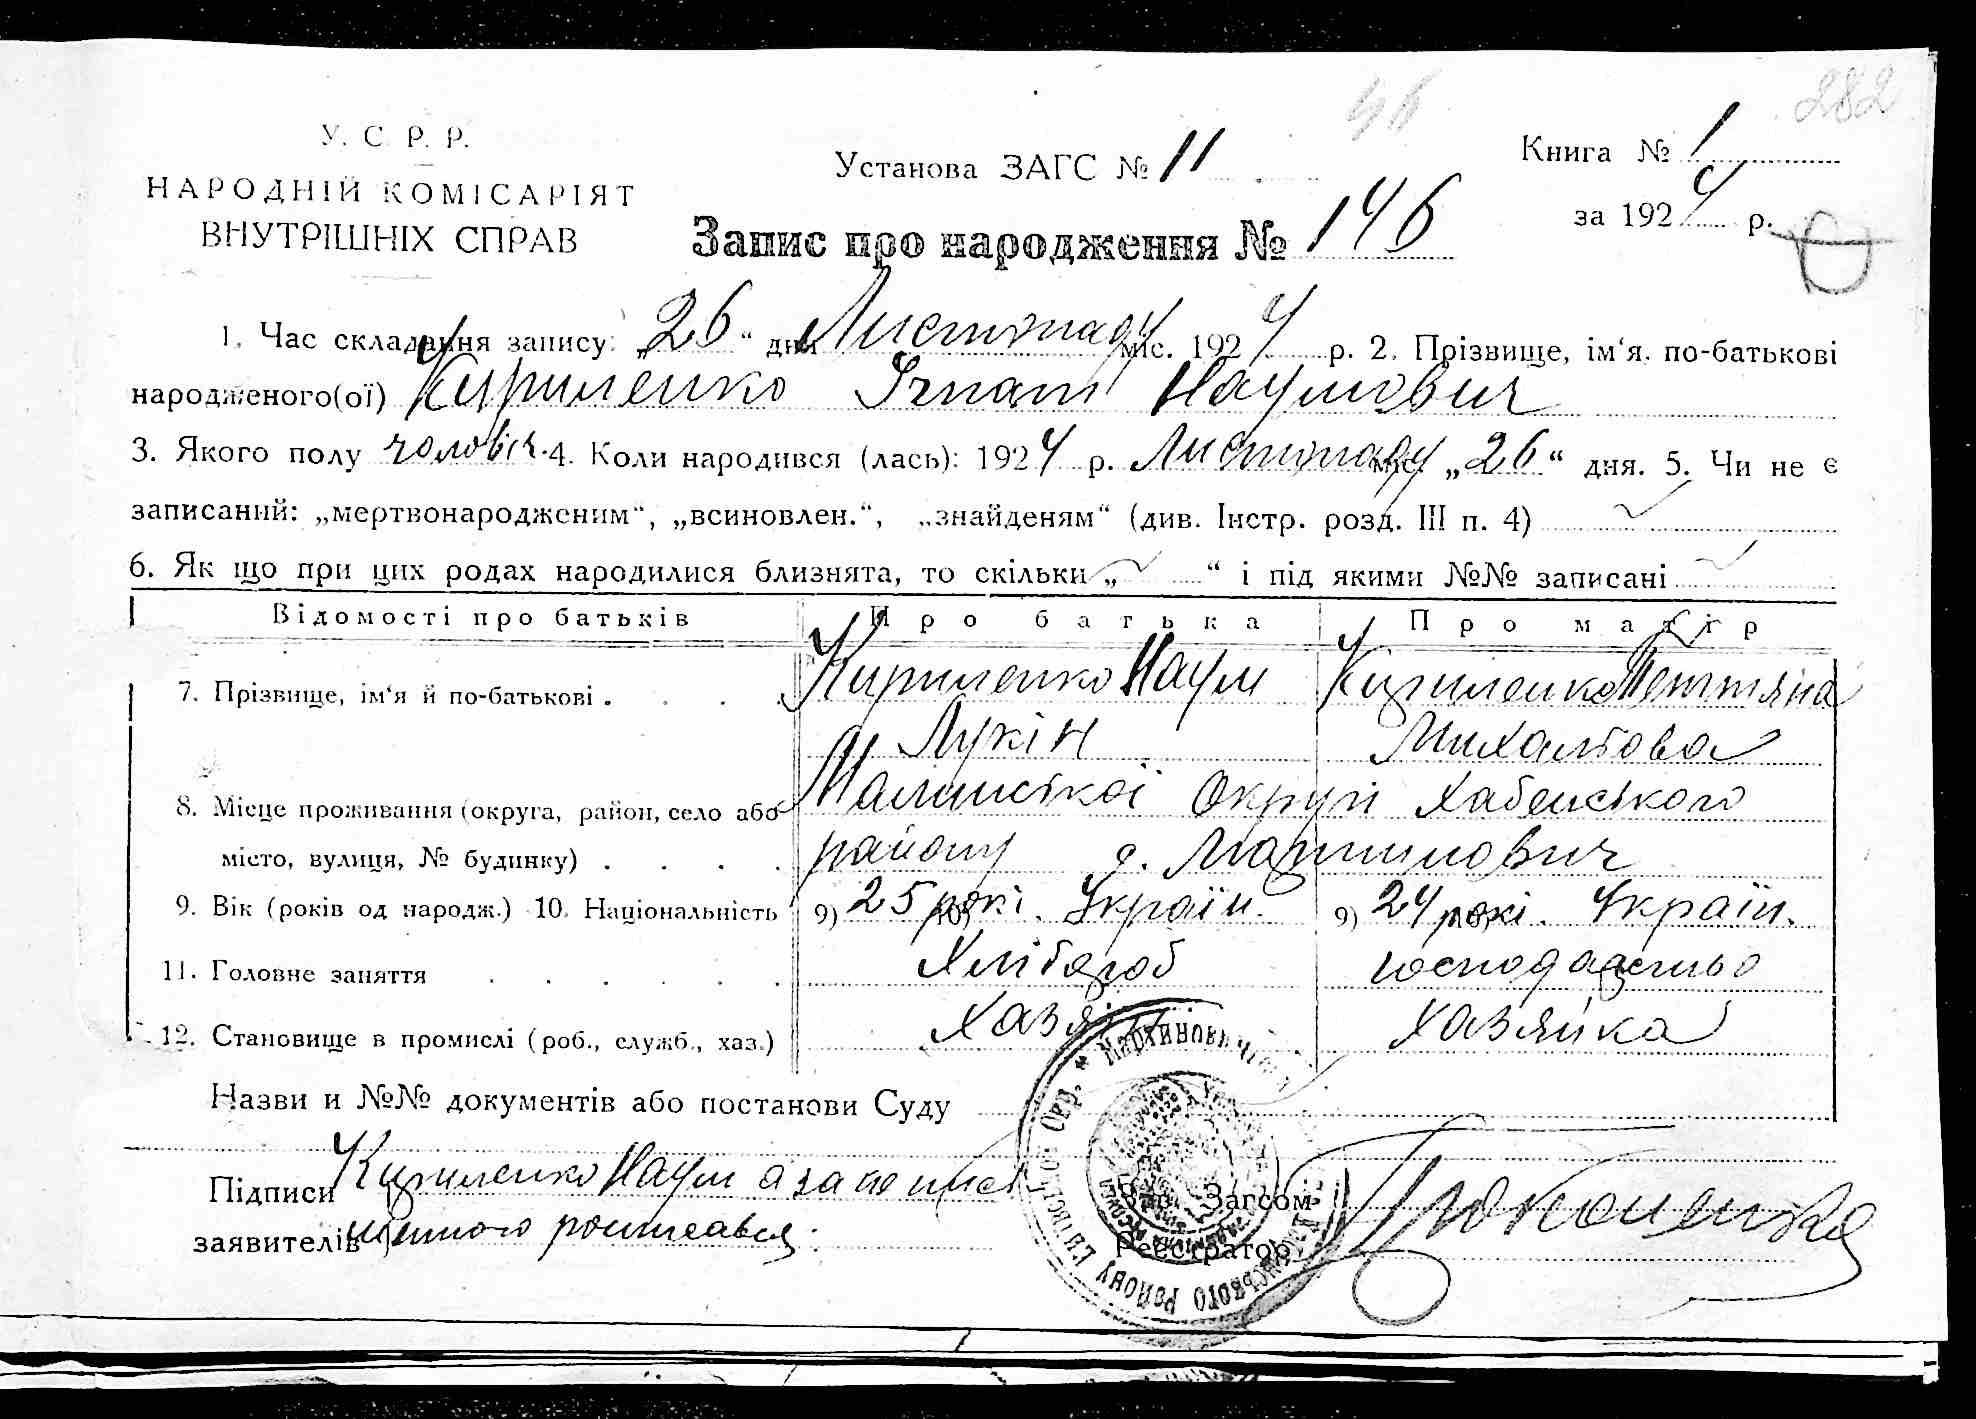 282
У. С. Р. Р.
НАРОДНІЙ КОМІСАРІЯТ
ВНУТРІШНІХ СПРАВ
Установа ЗАГС № 11
Книга № 1
за 1924 р.
Запис про народження № 146
1. Час складання запису: „26“ дня Листопаду міс. 1924 р. 2. Прізвище, ім‘я, по-батькові
народженого(ої) Кириленко Ігнат Наумович
3. Якого полу чоловіч. 4. Коли народився (лась): 1924 р. Листопаду міс. „26“ дня. 5. Чи не є
записаний: „мертвонародженим“, „всиновлен.“, „знайденям“ (див. Інстр. розд. III п. 4)
6. Як що при цих родах народилися близнята, то скільки „ “ і під якими №№ записані
Відомості про батьків Про батька Про матір
7. Прізвище, ім‘я й по-батькові . Кириленко Наум Кириленко Тетяна
Лукін Михалкова
8. Місце проживання (округа, район, село або Малинської Округи Хабенського
місто, вулиця, № будинку) . району с. Мартинович
9. Вік (років од народж.) 10. Національність 9) 25 рокі. 10) Україн. 9) 24 рокі. 10) Україн.
11. Головне заняття Хлібороб господарство
12. Становище в промислі (роб., служб., хаз.) Хазяїн Хазяйка
Назви и №№ документів або постанови Суду
Підписи Кириленко Наум а за не писі
заявителів менного росписався
Зав. Загсом
Реєстратор